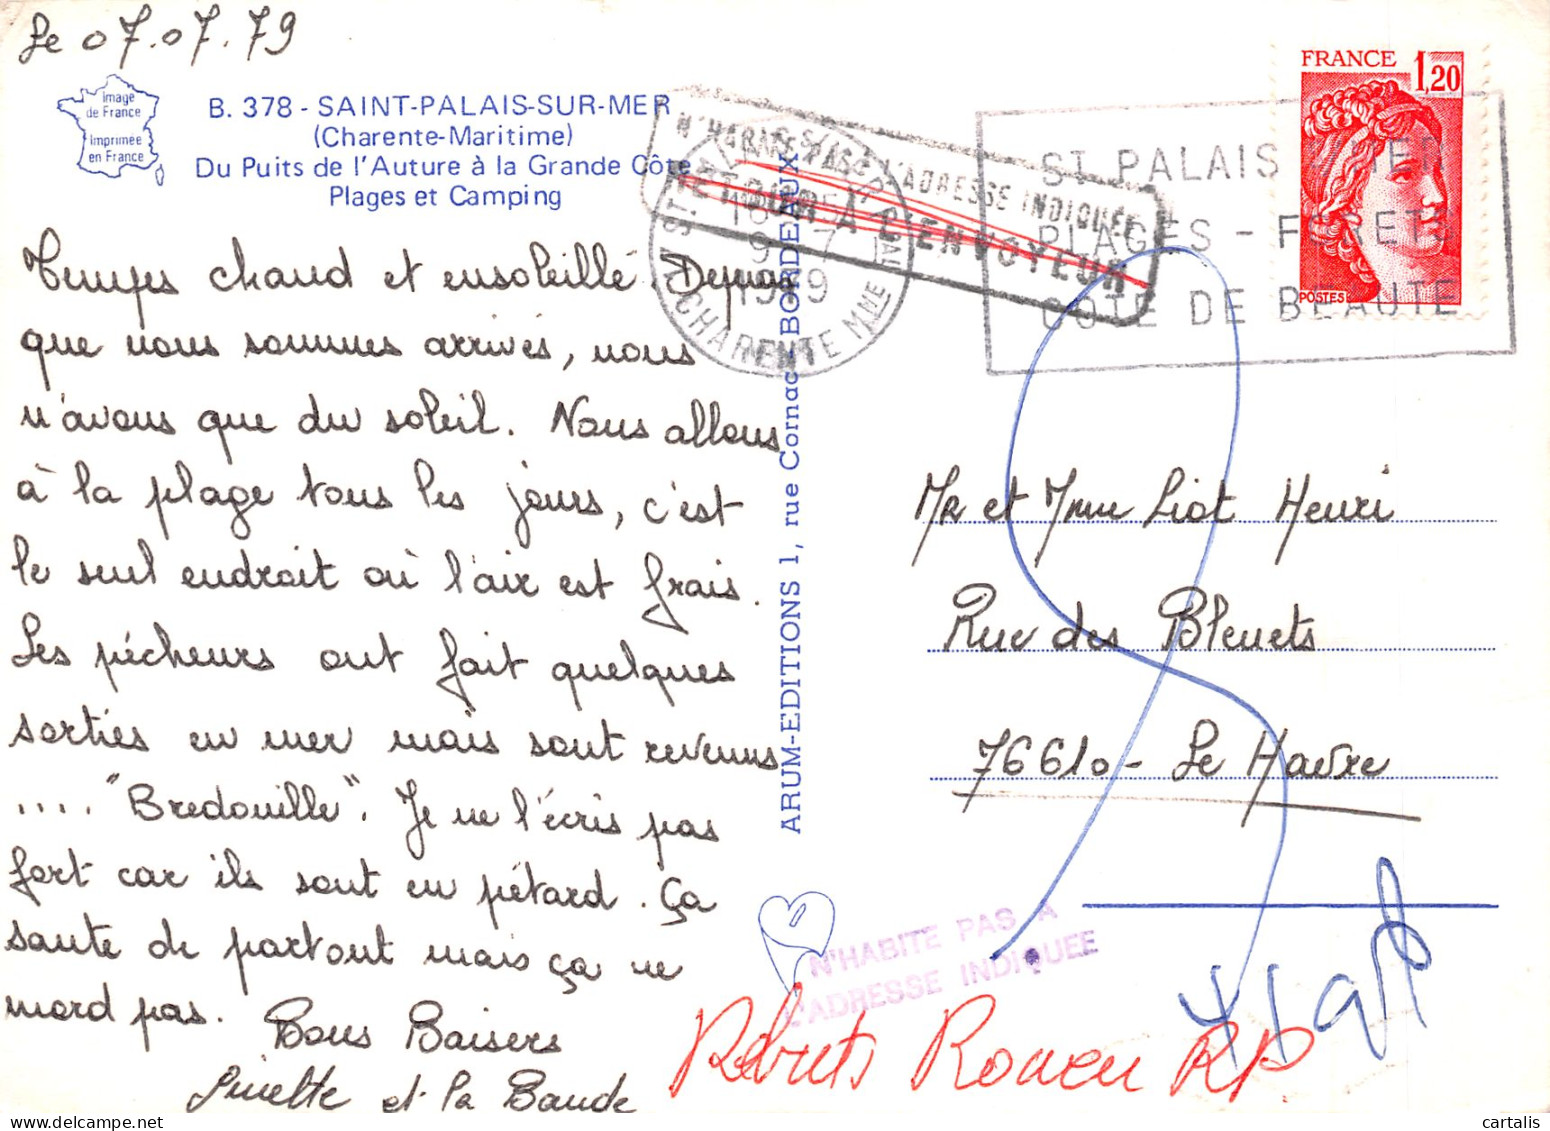 Le 07.07.79
Image
de France
Imprimée
en France
B. 378 - SAINT-PALAIS-SUR-MER
(Charente-Maritime)
Du Puits de l'Auture à la Grande Côte
Plages et Camping
Temps chaud et ensoleillé. Depuis
que nous sommes arrivés, nous
n'avons que du soleil. Nous allons
à la plage tous les jours, c'est
le seul endroit où l'air est frais.
Les pécheurs ont fait quelques
sorties en mer mais sont revenus
.... "Bredouille". Je ne l'écris pas
fort car ils sont en pétard. Ça
saute de partout mais ça ne
mord pas.
Bons Baisers
Ginette et la Bande
ARUM-EDITIONS 1, rue Cornac - BORDEAUX
N'HABITE PAS À L'ADRESSE INDIQUÉE
RETOUR À L'ENVOYEUR
9-7
1979
CHARENTE MME
ST PALAIS S/MER
PLAGES - FORETS
COTE DE BEAUTE
FRANCE 1,20
POSTES
Mr et Mme Liot Henri
Rue des Bleuets
76610 - Le Havre
N'HABITE PAS A
L'ADRESSE INDIQUEE
Rebuts Rouen RP
cartalis